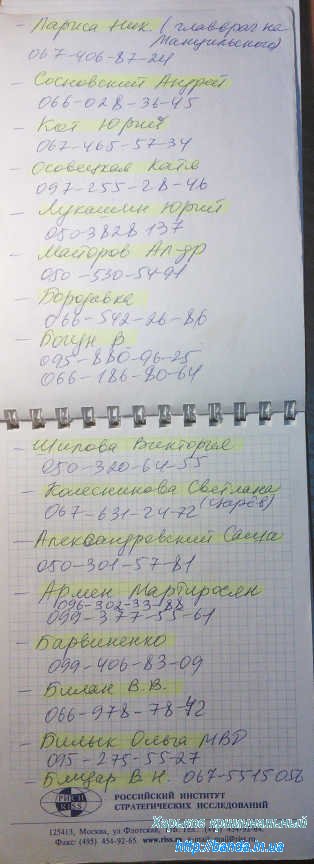 - Лариса Ник. (главврач на
Мандрыковской)
067-406-87-24
- Сосновский Андрей
066-028-36-45
- Кот Юрий
067-465-57-34
- Осовецкая Катя
097-255-28-46
- Лукашин Юрий
050-3828 137
- Майоров Ал-др
050-530-54-91
- Бородавка
066-542-26-86
- Богун В
095-880-96-25
066-186-80-64
- Шилова Виктория
050-320-64-55
- Колесникова Светлана
067-631-24-72 (Царёв)
- Александровский Саша
050-301-57-81
- Армен Мартиросян
096-302-33-88
099-377-55-61
- Барвиненко
099-406-83-09
- Билан В.В.
066-978-78-42
- Билык Ольга МВД
095-275-55-27
- В.Н. 067-5515056
РИСИ
RISS
РОССИЙСКИЙ ИНСТИТУТ
СТРАТЕГИЧЕСКИХ ИССЛЕДОВАНИЙ
125413, Москва, ул Флотская,
Факс: (495) 454-92-65 www.riss.ru, e-mail: mail@riss.ru
Харьков криминальный